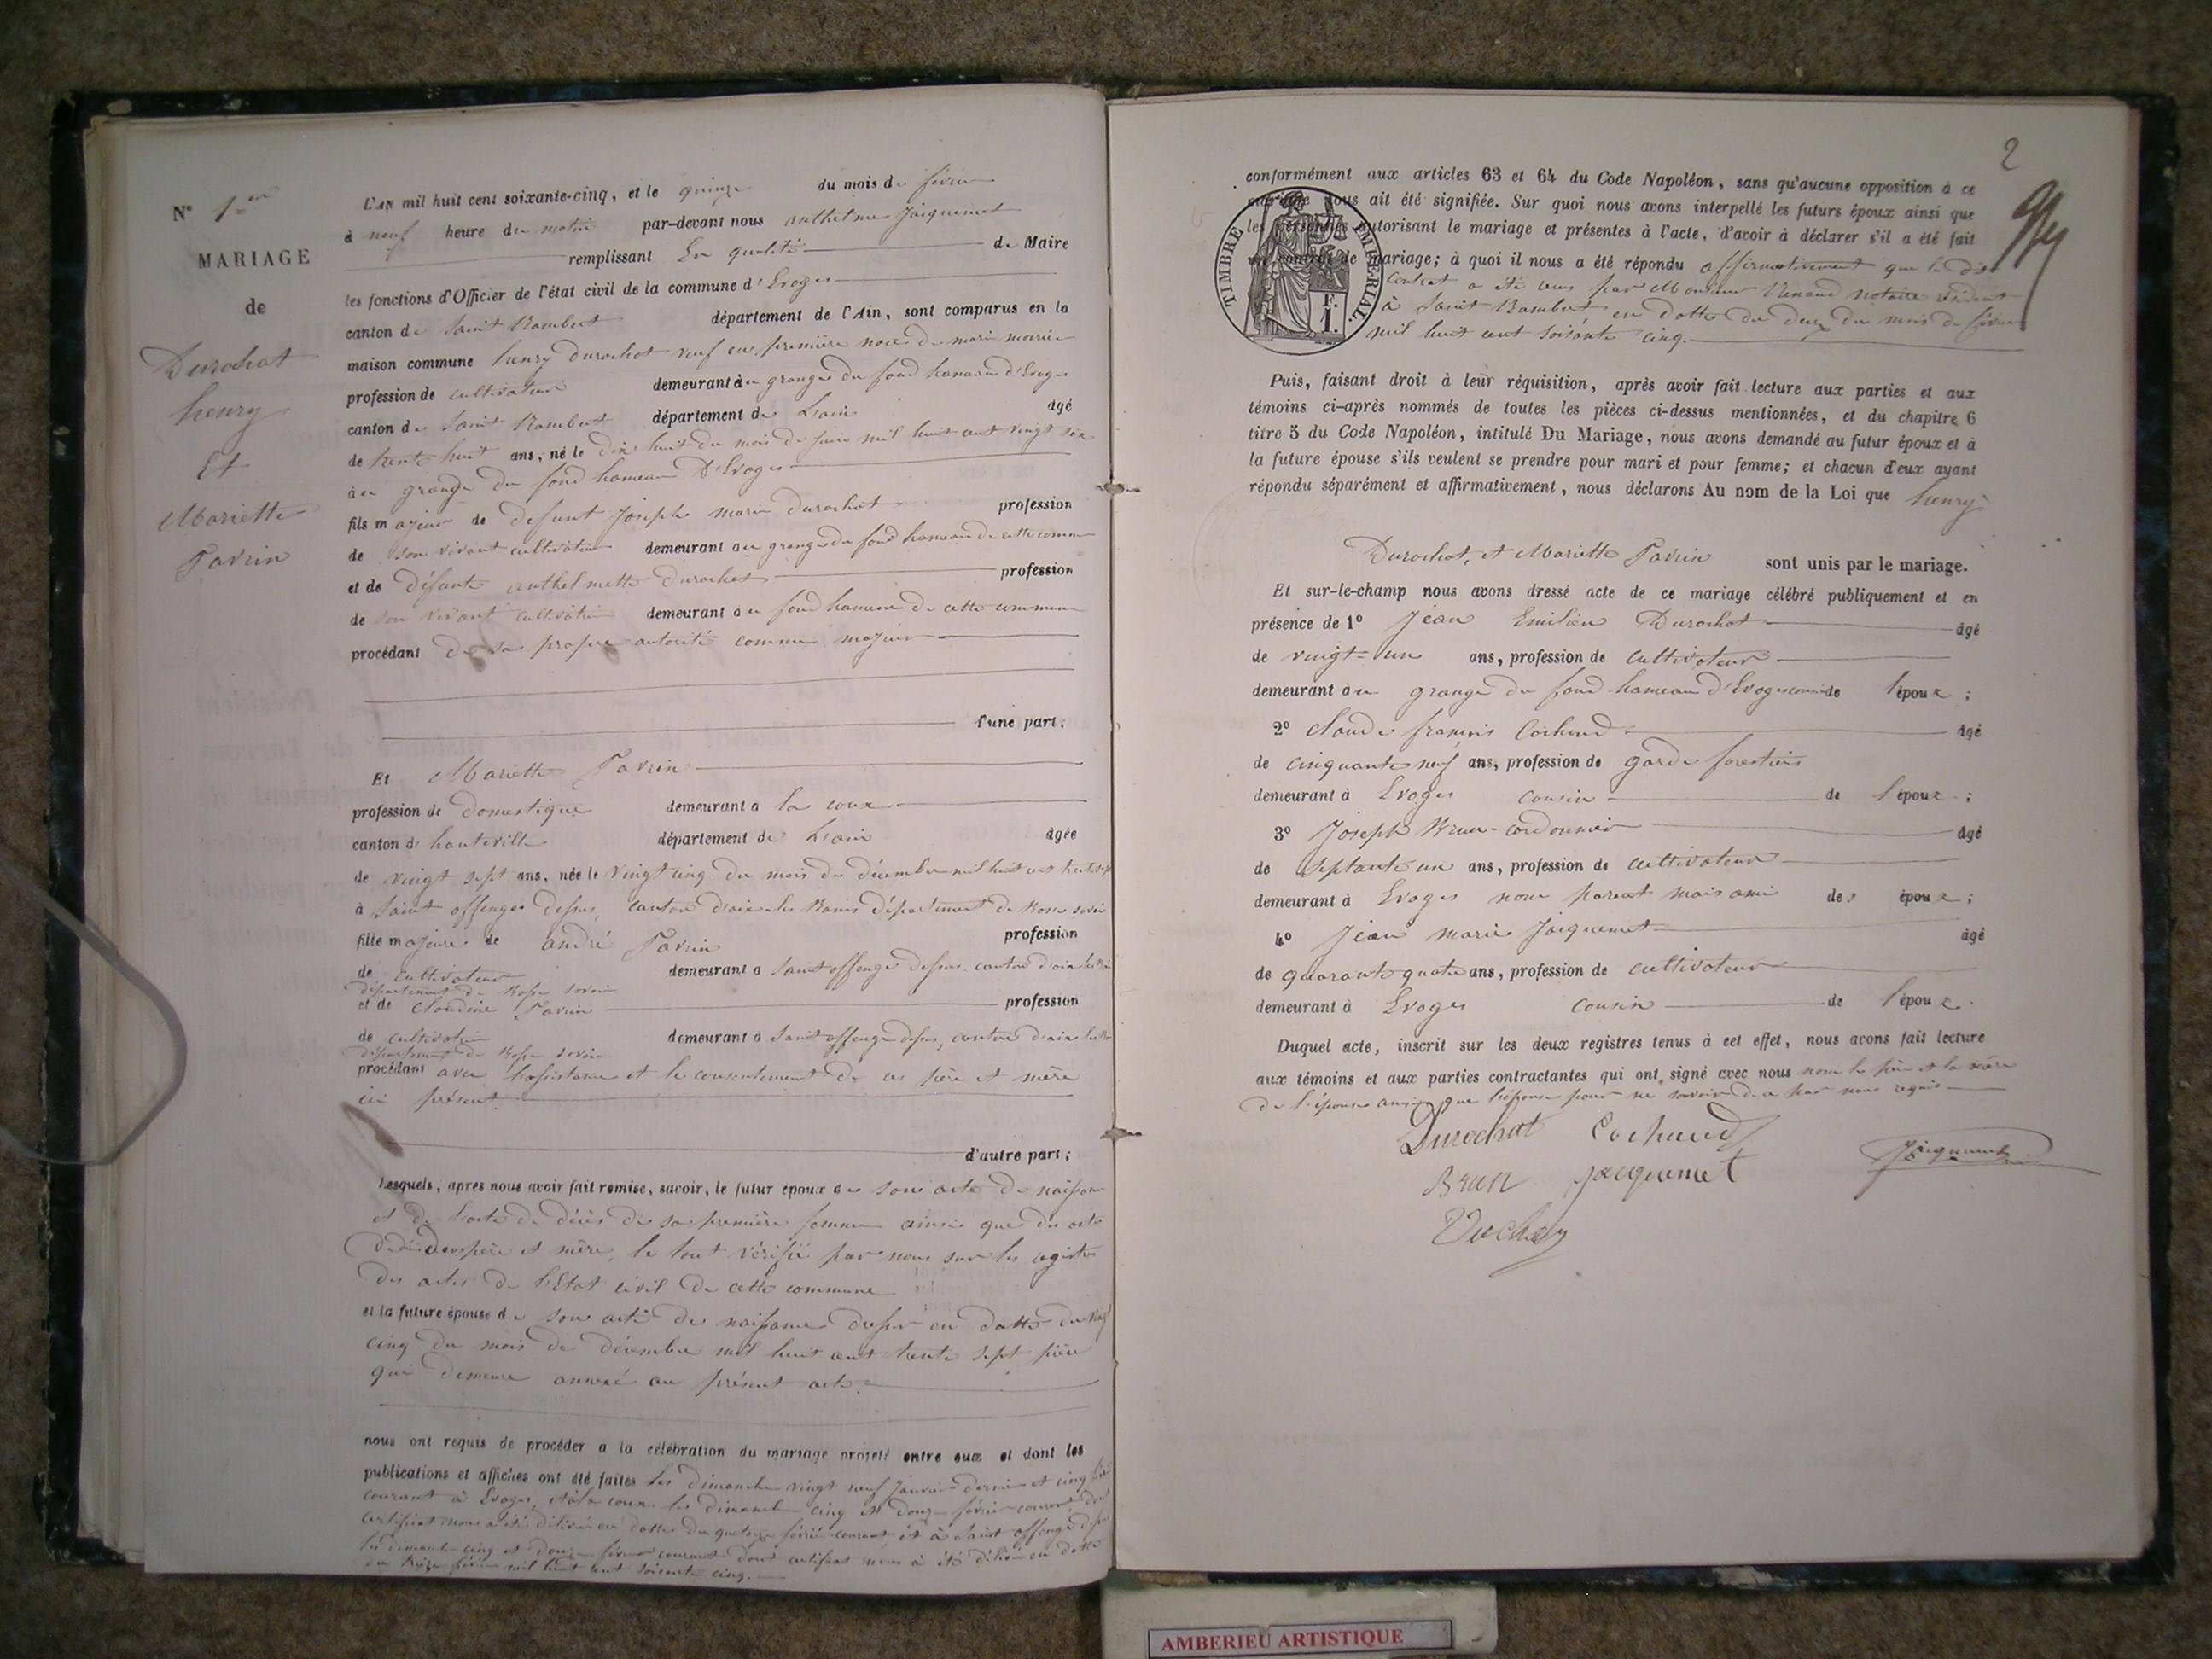 N° 1er
MARIAGE
de
Durochat
henry
Et
Mariette
Pavrin
L'AN mil huit cent soixante-cinq, et le quinze du mois de février
à neuf heure du matin par-devant nous anthelme Jacquemet
remplissant En qualité de Maire
les fonctions d'Officier de l'état civil de la commune d'Evoges
canton de Saint Rambert département de l'Ain, sont comparus en la
maison commune henry durochat veuf en première noce de marie
profession de cultivateur demeurant au granges du fond hameau d'Evoges
canton de Saint Rambert département de Lain âgé
de trente huit ans, né le dix huit du mois de juin mil huit cent vingt six
au grange du fond hameau D'Evoges
fils majeur de defunt Joseph marie durochat profession
de son vivant cultivateur demeurant au grange du fond hameau de cette commune
et de défunte anthelmette durochat profession
de son vivant cultivatrice demeurant au fond hameau de cette commune
procédant de sa propre autorité comme majeur
l'une part;
Et Mariette Pavrin
profession de domestique demeurant à la coux
canton de hauteville département de Lain âgée
de vingt sept ans, née le vingt cinq du mois de décembre mil huit cent trente sept
à Saint offenge dessus, canton d'aix les Bains département de savoie
fille majeure de andré Pavrin profession
de cultivateur demeurant à Saint offenge dessus canton d'aix les
département de savoie
et de Claudine Pavrin profession
de cultivatrice demeurant à Saint offenge dessus, canton d'aix les
département de savoie
procédant avec lassistance et le consentement de ces père et mère
ici présent
d'autre part;
Lesquels, après nous avoir fait remise, savoir, le futur époux de son acte de naissance
et de l'acte de décès de sa première femme ainsi que des acte
de décès de ses père et mère, le tout vérifié par nous sur les registre
des actes de l'Etat civil de cette commune
et la future épouse de son acte de naissance dressé en datte du vingt
cinq du mois de décembre mil huit cent trente sept pièce
qui demeure annexé au présent acte.
nous ont requis de procéder à la célébration du mariage projeté entre eux et dont les
publications et affiches ont été faites les dimanche vingt neuf janvier dernier et cinq
courant à Evoges, et à la coux les dimanche cinq et douze février courant dont
certificat nous a été délivré en datte du quatorze février courant et à Saint offenge dessus
les dimanche cinq et douze février courant dont certificat nous a été délivré en datte
du treize février mil huit cent soixante cinq.
2
conformément aux articles 63 et 64 du Code Napoléon, sans qu'aucune opposition à ce
mariage nous ait été signifiée. Sur quoi nous avons interpellé les futurs époux ainsi que
les personnes autorisant le mariage et présentes à l'acte, d'avoir à déclarer s'il a été fait
un contrat de mariage; à quoi il nous a été répondu affirmativement que le dit
Contrat a été reçu par Monsieur notaire résident
à Saint Rambert en datte du deux du mois de février
mil huit cent soixante cinq.
TIMBRE IMPERIAL
F.
1.
Puis, faisant droit à leur réquisition, après avoir fait lecture aux parties et aux
témoins ci-après nommés de toutes les pièces ci-dessus mentionnées, et du chapitre 6
titre 5 du Code Napoléon, intitulé Du Mariage, nous avons demandé au futur époux et à
la future épouse s'ils veulent se prendre pour mari et pour femme; et chacun d'eux ayant
répondu séparément et affirmativement, nous déclarons Au nom de la Loi que henry
Durochat, et Mariette Pavrin sont unis par le mariage.
Et sur-le-champ nous avons dressé acte de ce mariage célébré publiquement et en
présence de 1° Jean Emilien Durochat âgé
de vingt-un ans, profession de cultivateur
demeurant au grange du fond hameau d'Evoges cousin de l'époux;
2° claude françois Cochaud âgé
de cinquante neuf ans, profession de garde forestier
demeurant à Evoges cousin de l'époux;
3° Joseph Brun-cordonnier âgé
de septante un ans, profession de cultivateur
demeurant à Evoges non parent mais ami des époux;
4° Jean marie Jacquemet âgé
de quarante quatre ans, profession de cultivateur
demeurant à Evoges cousin de l'époux.
Duquel acte, inscrit sur les deux registres tenus à cet effet, nous avons fait lecture
aux témoins et aux parties contractantes qui ont signé avec nous non le père et la mère
de l'épouse ainsi que lépouse pour ne savoir de a par nous requis
Durochat Cochaud
Jacquemet
Brun Jacquemet
AMBERIEU ARTISTIQUE